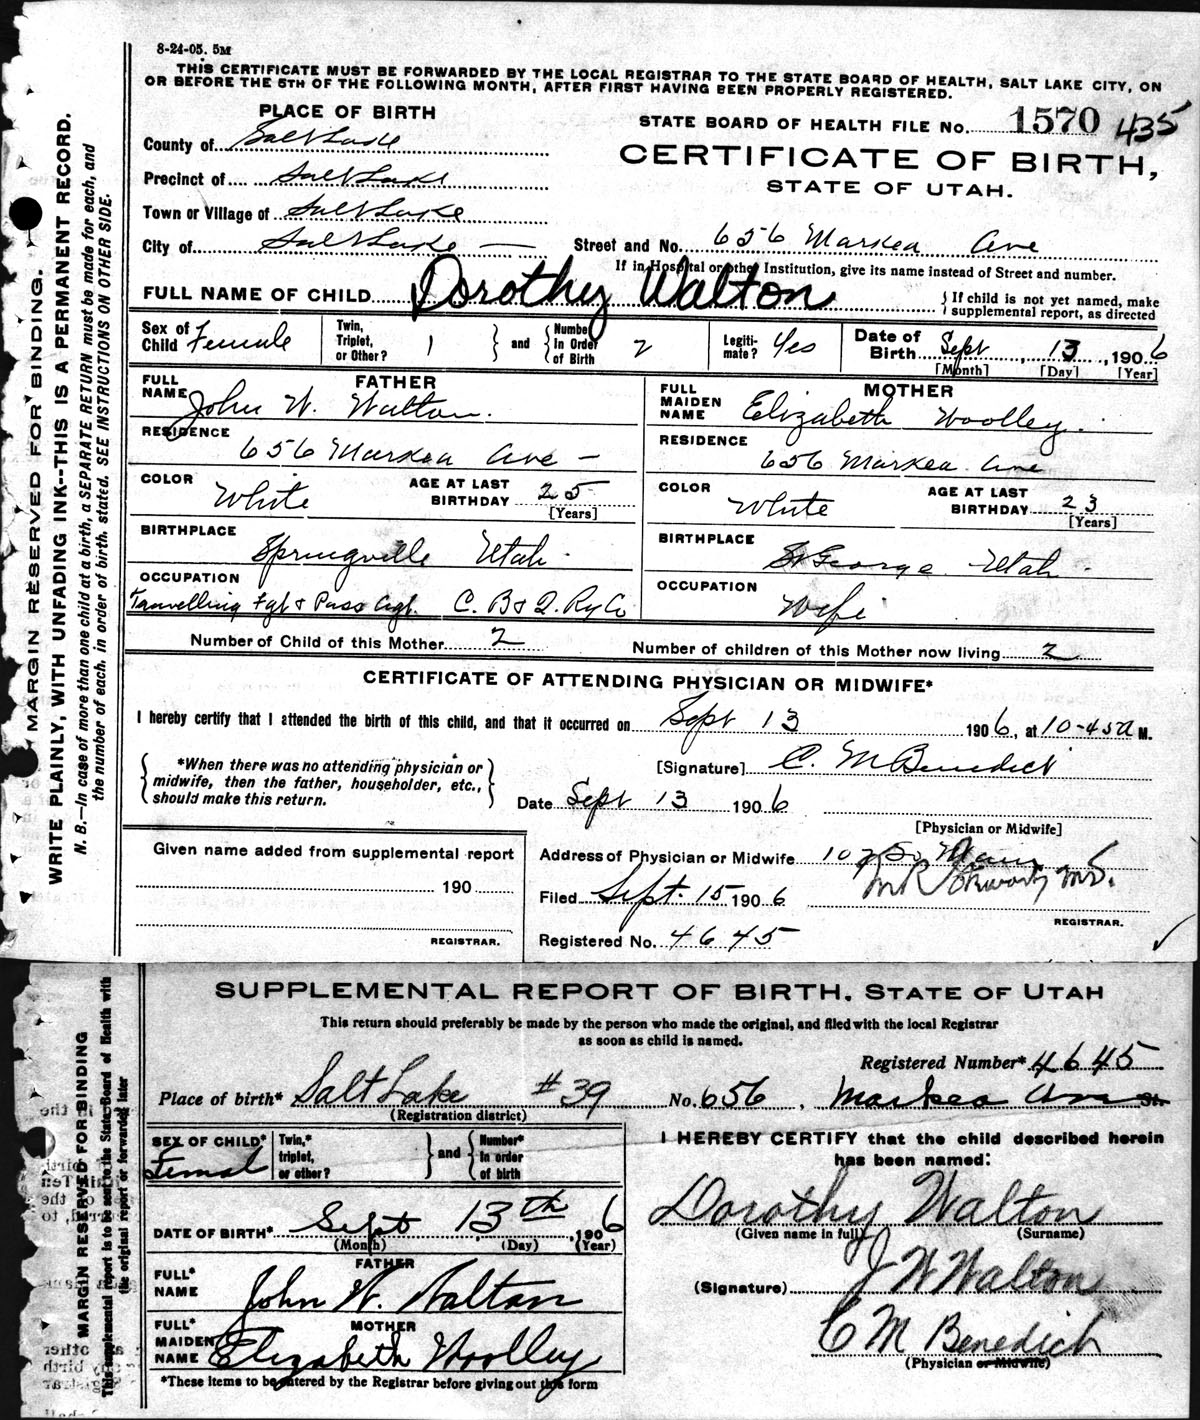 8-24-05. 5M
THIS CERTIFICATE MUST BE FORWARDED BY THE LOCAL REGISTRAR TO THE STATE BOARD OF HEALTH, SALT LAKE CITY, ON
OR BEFORE THE 5TH OF THE FOLLOWING MONTH, AFTER FIRST HAVING BEEN PROPERLY REGISTERED.
PLACE OF BIRTH
STATE BOARD OF HEALTH FILE No. 1570 435
County of Salt Lake
CERTIFICATE OF BIRTH,
STATE OF UTAH.
Precinct of Salt Lake
Town or Village of Salt Lake
City of Salt Lake — Street and No. 656 Markea Ave
If in Hospital or other Institution, give its name instead of Street and number.
FULL NAME OF CHILD Dorothy Walton { If child is not yet named, make
supplemental report, as directed
Sex of Child Female Twin, Triplet, or Other? 1 and Number In Order of Birth 2 Legiti- mate? Yes Date of Birth Sept 13, 1906
[Month] [Day] [Year]
FATHER
FULL NAME John W. Walton.
MOTHER
FULL MAIDEN NAME Elizabeth Woolley.
RESIDENCE 656 Markea Ave —
RESIDENCE 656 Markea Ave
COLOR White AGE AT LAST BIRTHDAY 25 [Years]
COLOR White AGE AT LAST BIRTHDAY 23 [Years]
BIRTHPLACE Springville Utah.
BIRTHPLACE St George Utah.
OCCUPATION Travelling Fgt & Pass Agt. C. B & Q. Ry Co
OCCUPATION Wife
Number of Child of this Mother 2 Number of children of this Mother now living 2
CERTIFICATE OF ATTENDING PHYSICIAN OR MIDWIFE*
I hereby certify that I attended the birth of this child, and that it occurred on Sept 13 1906, at 10-45a M.
*When there was no attending physician or
midwife, then the father, householder, etc.,
should make this return.
[Signature] C. M Benedict
Date Sept 13 1906
[Physician or Midwife]
Given name added from supplemental report
190
REGISTRAR.
Address of Physician or Midwife So Main
Filed Sept. 15 1906 M.D.
REGISTRAR.
Registered No. 4645
MARGIN RESERVED FOR BINDING.
WRITE PLAINLY, WITH UNFADING INK--THIS IS A PERMANENT RECORD.
N. B.—In case of more than one child at a birth, a SEPARATE RETURN must be made for each, and
the number of each, in order of birth, stated. SEE INSTRUCTIONS ON OTHER SIDE.
SUPPLEMENTAL REPORT OF BIRTH. STATE OF UTAH
This return should preferably be made by the person who made the original, and filed with the local Registrar
as soon as child is named.
Registered Number* 4645
Place of birth* Salt Lake #39 No. 656, Markea Ave St.
(Registration district)
SEX OF CHILD* Femal Twin,* triplet, or other? and Number* In order of birth
I HEREBY CERTIFY that the child described herein
has been named:
Dorothy Walton
(Given name in full) (Surname)
DATE OF BIRTH* Sept 13th, 1906
(Month) (Day) (Year)
FATHER
FULL* NAME John W. Walton
(Signature) J W Walton
MOTHER
FULL* MAIDEN NAME Elizabeth Woolley
C M Benedict
(Physician or Midwife)
*These items to be entered by the Registrar before giving out this form
MARGIN RESERVED FOR BINDING
This supplemental report is to be sent to the State Board of Health with
the original report or forwarded later